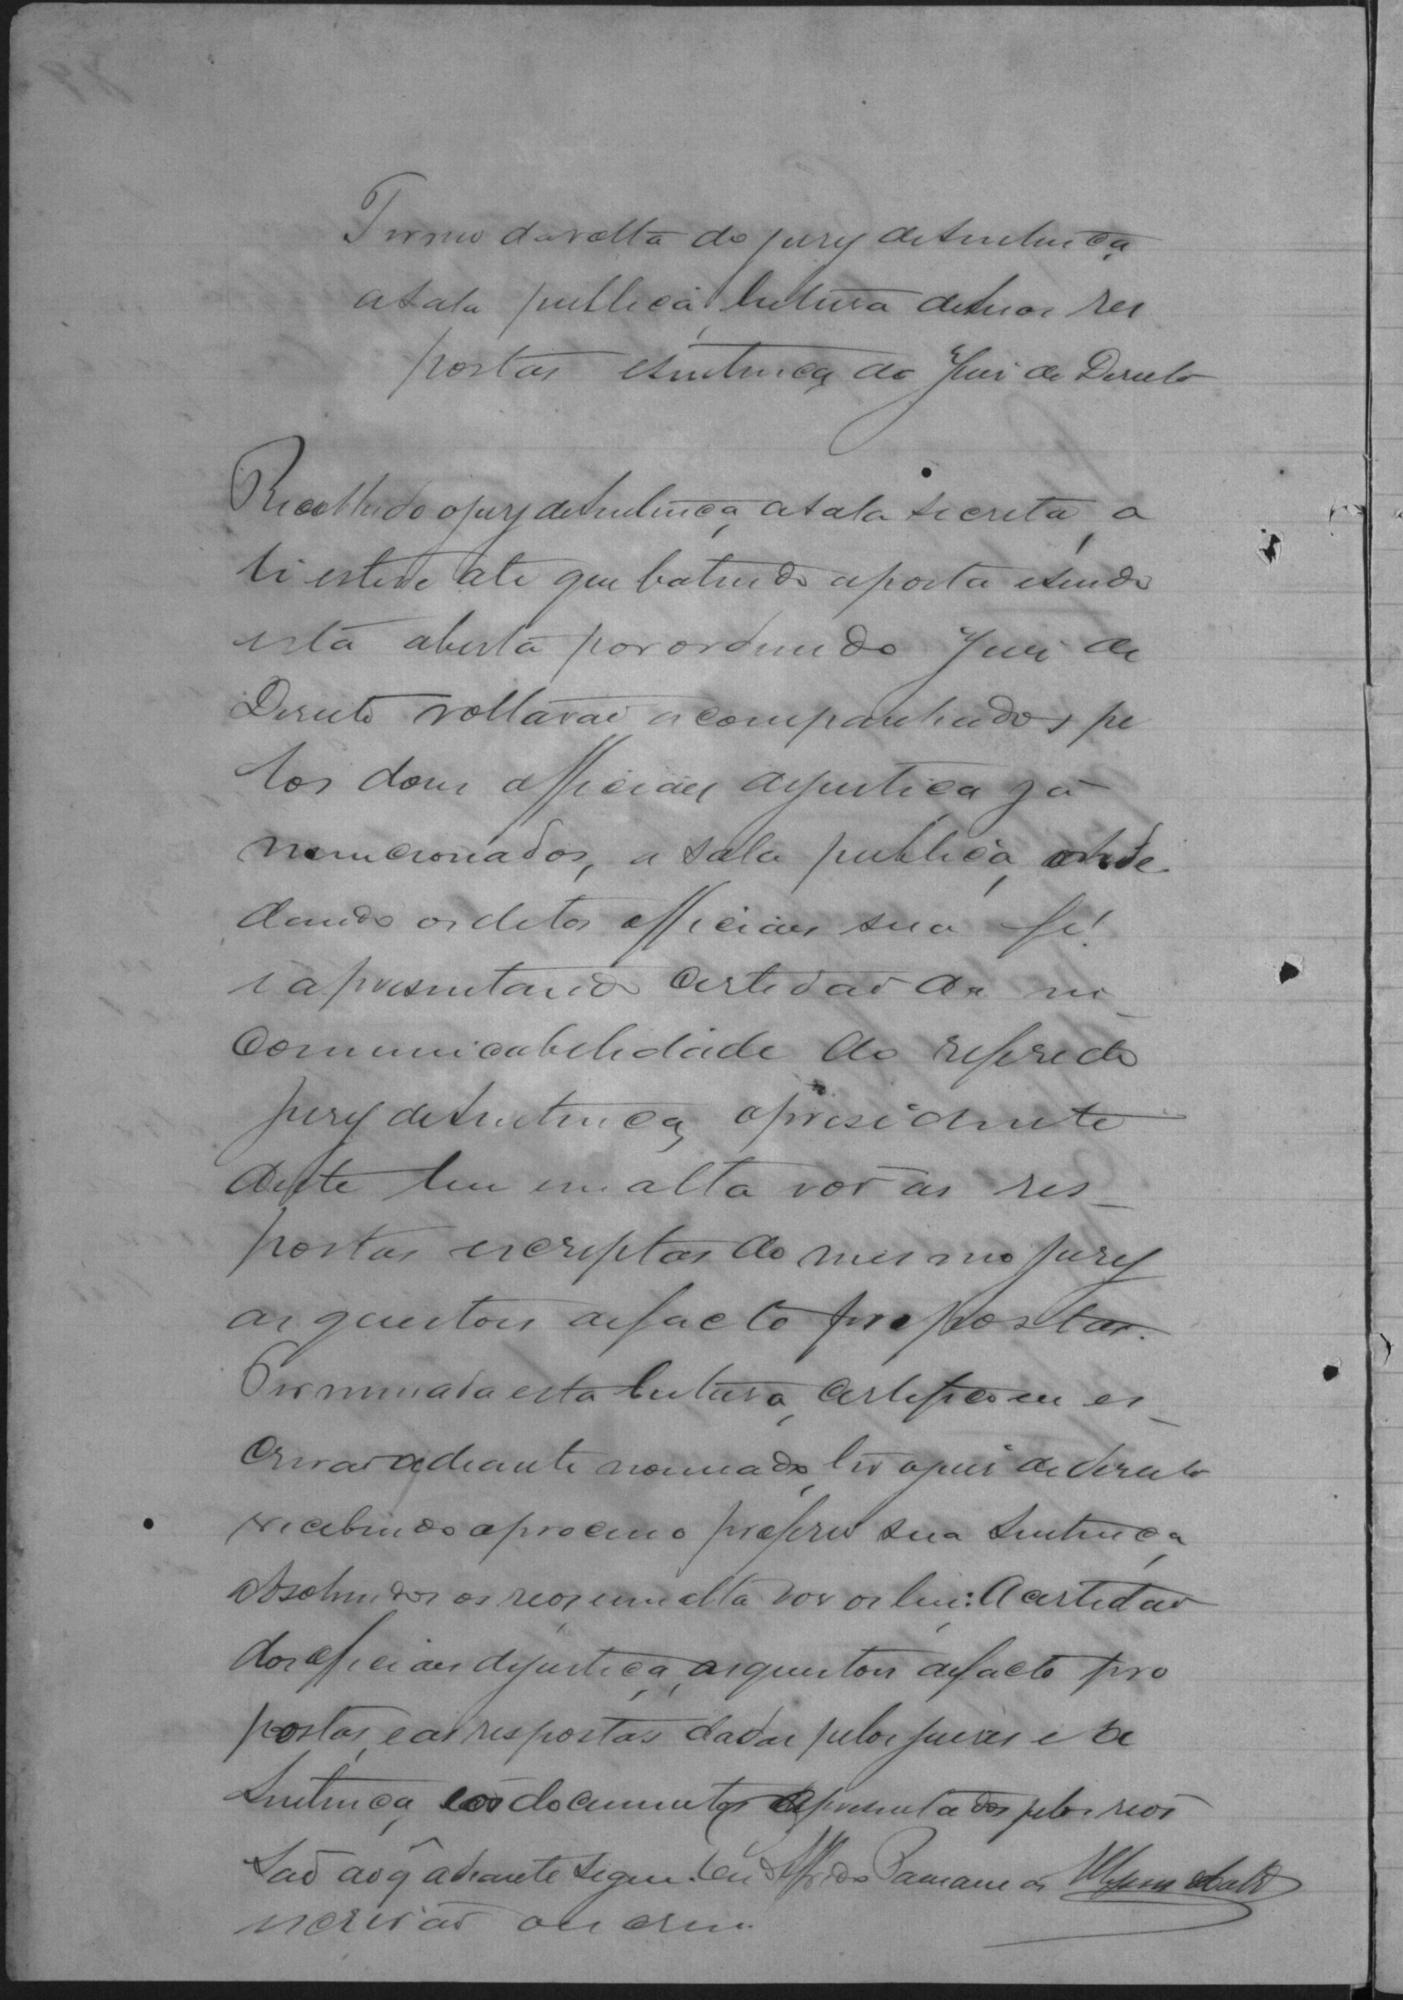 Termo da volta do jury de sentença
a sala publica, leitura de suas res
postas e sentença do Juiz de Direito
Recolhido o jury de sentença, a sala secreta, a
li esteve até que batendo a porta e sendo
esta aberta por ordem do Juiz de
Direito voltarão acompanhados pe
los dous officiaes de justiça já
mencionados, a sala publica, onde
dando os ditos officiaes sua fé
e apresentando certidão da in
communicabilidade do referido
jury de sentença, o presidente
deste leu em alta voz as res-
postas escriptas do mesmo jury
as questões de facto propostas.
Terminada esta leitura, certifico eu es-
crivão adiante nomeado, que o juiz de direito
recebendo o processo proferio sua sentença
absolvendo os reos, e em alta voz os leu: A certidão
dos officiaes de justiça, as questões de facto pro
postas, e as respostas dadas pelos juizes e de
Sentença, e os documentos apresentados pelos reos
são ao q̂ adiante segue. Eu Alfredo
escrivão o escrevi.